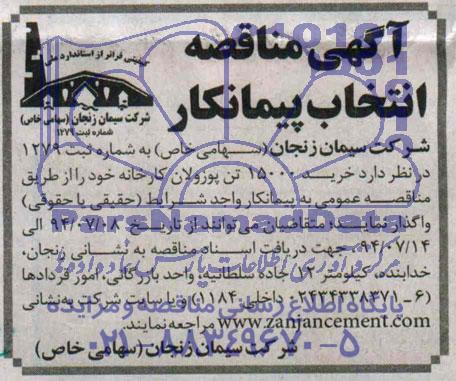 آگهی مناقصه
انتخاب پیمانکار
کیفیتی فراتر از استاندارد ملی
شرکت سیمان زنجان (سهامی خاص)
شماره ثبت ۱۲۷۹
شرکت سیمان زنجان (سهامی خاص) به شماره ثبت ۱۲۷۹
در نظر دارد خرید ۱۵۰۰۰ تن پوزولان کارخانه خود را از طریق
مناقصه عمومی به پیمانکار واجد شرایط (حقیقی یا حقوقی)
واگذار نماید، متقاضیان می توانند از تاریخ ۹۴/۰۷/۰۸ الی
۹۴/۰۷/۱۴ جهت دریافت اسناد مناقصه به نشانی زنجان،
خدابنده، کیلومتر ۱۲ جاده سلطانیه، واحد بازرگانی، امور قراردادها
(۶-۰۲۴۳۴۳۳۸۳۷۱ داخلی ۱۱۸۴) و یا سایت شرکت به نشانی
www.zanjancement.com مراجعه نمایند.
شرکت سیمان زنجان (سهامی خاص)
ParsNamadData
پایگاه اطلاع رسانی مناقصه و مزایده
۰۲۱-۸۸۳۴۹۶۷۰-۵